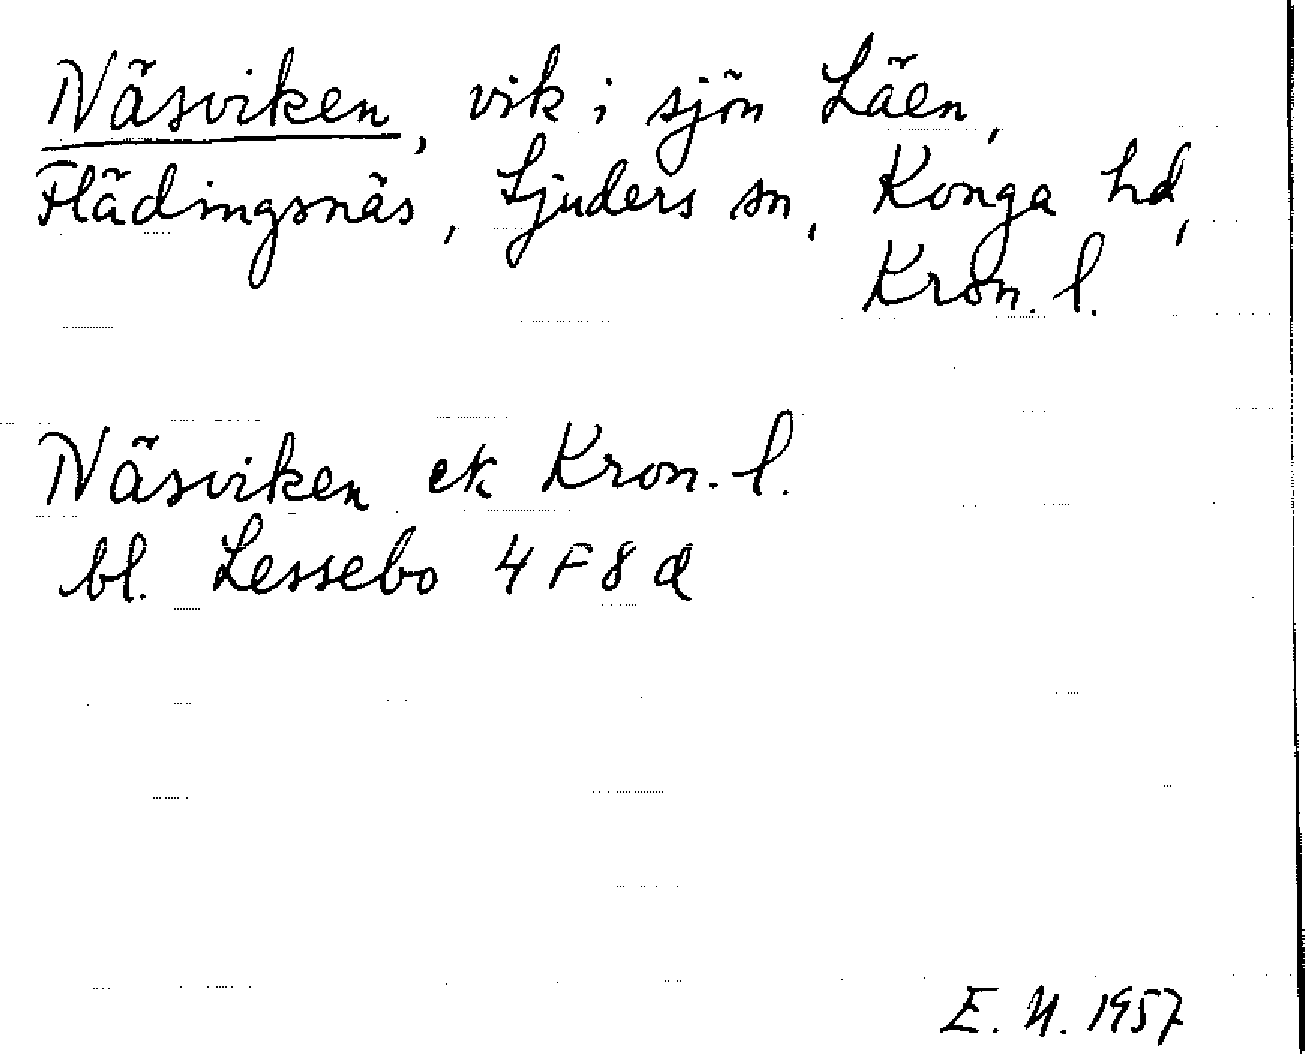 Näsviken, vik i sjön Läen,
Flädingsnäs, Ljuders sn, Konga hd,
Kron. l.
Näsviken ek Kron. l.
bl. Lessebo 4 F 8 d
E. N. 1957